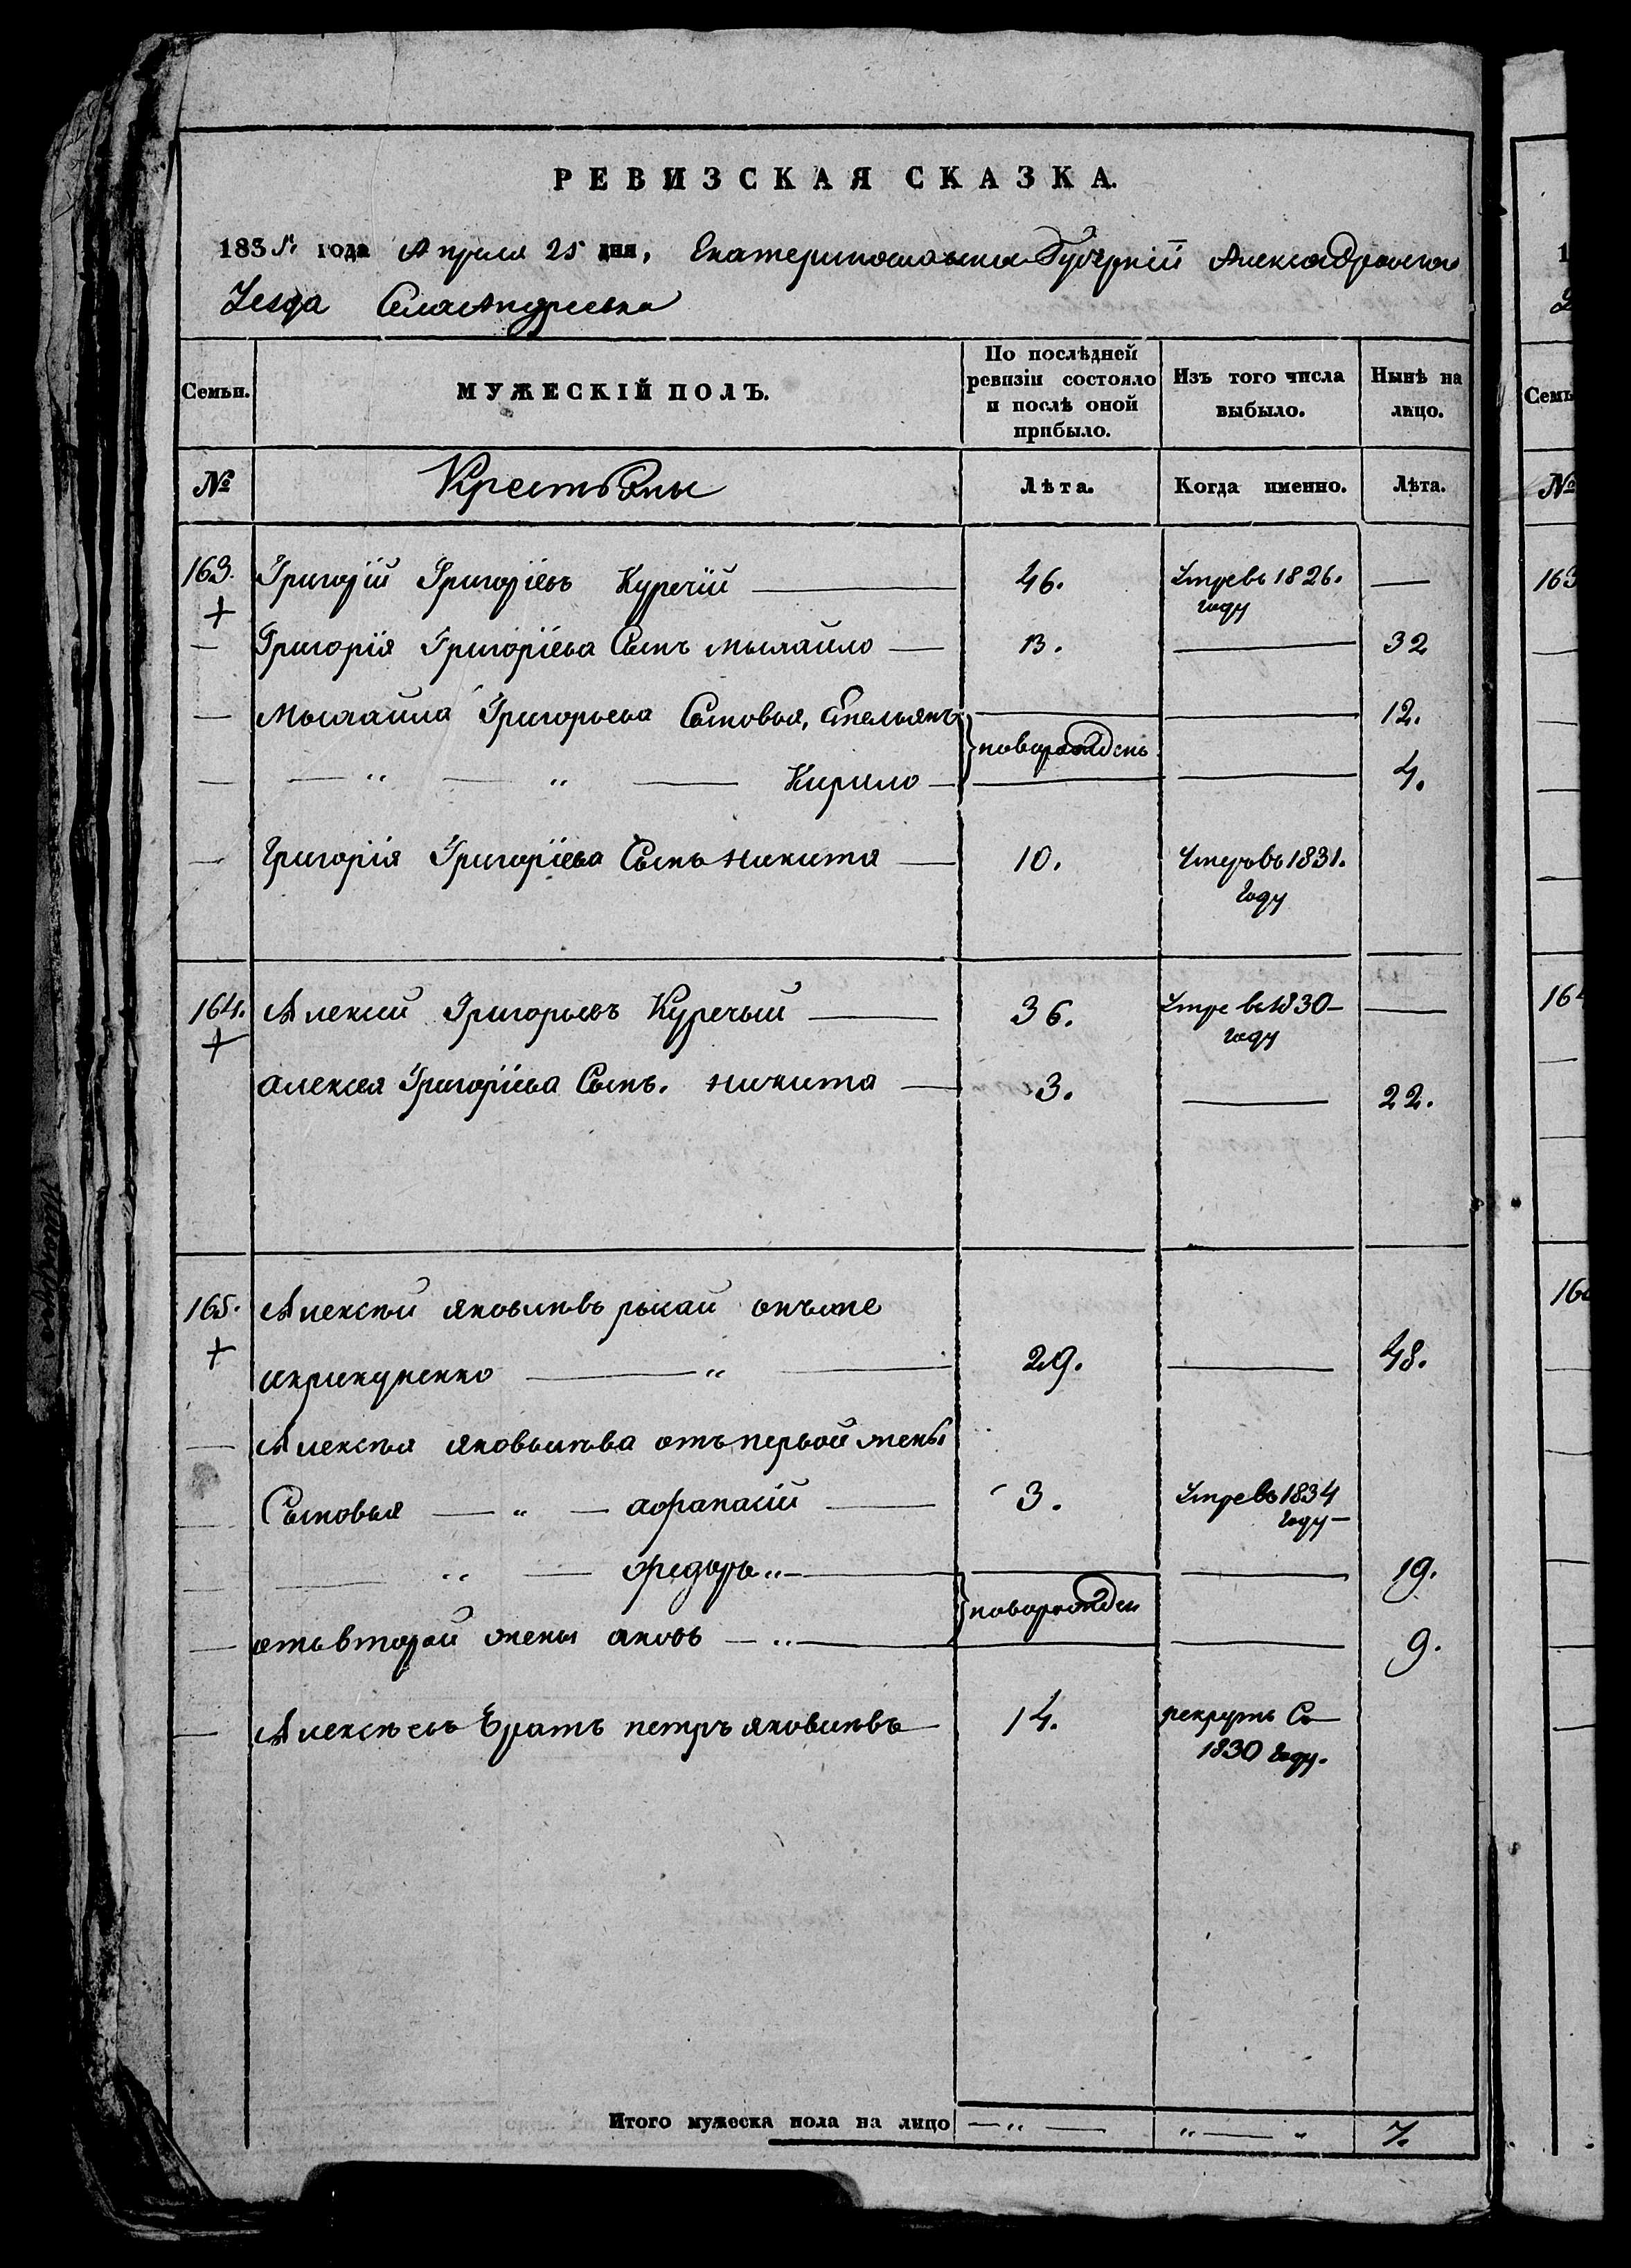 РЕВИЗСКАЯ СКАЗКА.
1835 года Апреля 25 дня, Екатеринославской Губернїи Александровского
Уезда Села Андреевка
Семьи.
МУЖЕСКІЙ ПОЛЪ.
По послѣдней ревизіи состояло и послѣ оной прибыло.
Изъ того числа выбыло.
Нынѣ на лицо.
№ Крестьяны Лѣта. Когда именно. Лѣта.
163. Григорїй Григорїевъ Куречїй — 46. Умре въ 1826. году —
Григорїя Григорїева Сынъ Мыхайло — 13. — 32
Мыхайла Григорьева Сыновья, Емельянъ — 12.
новорожденъ
— " — " — Кирило — 4.
Григорїя Григорїева Сынъ Никита — 10. Умеръ въ 1831. году
164. Алексий Григорьевъ Куречый — 36. Умре в 1830 — году —
Алексея Григорїева Сынъ. Никита — 3. — 22.
165. Алексѣй Яковлѣвъ
— " — 29. — 48.
Алексѣя Яковлѣва отъ первой жены
Сыновья — " — Афанасїй — 3. Умре въ 1834 году —
" — Федоръ " — 19.
новорожден
отъ второй жены Яковъ — " — 9.
Алексѣевъ братъ Петръ Яковлѣвъ — 14. рекрутъ Съ 1830 году.
Итого мужеска пола на лицо — " — " — " 7.
163
164
Семь
№